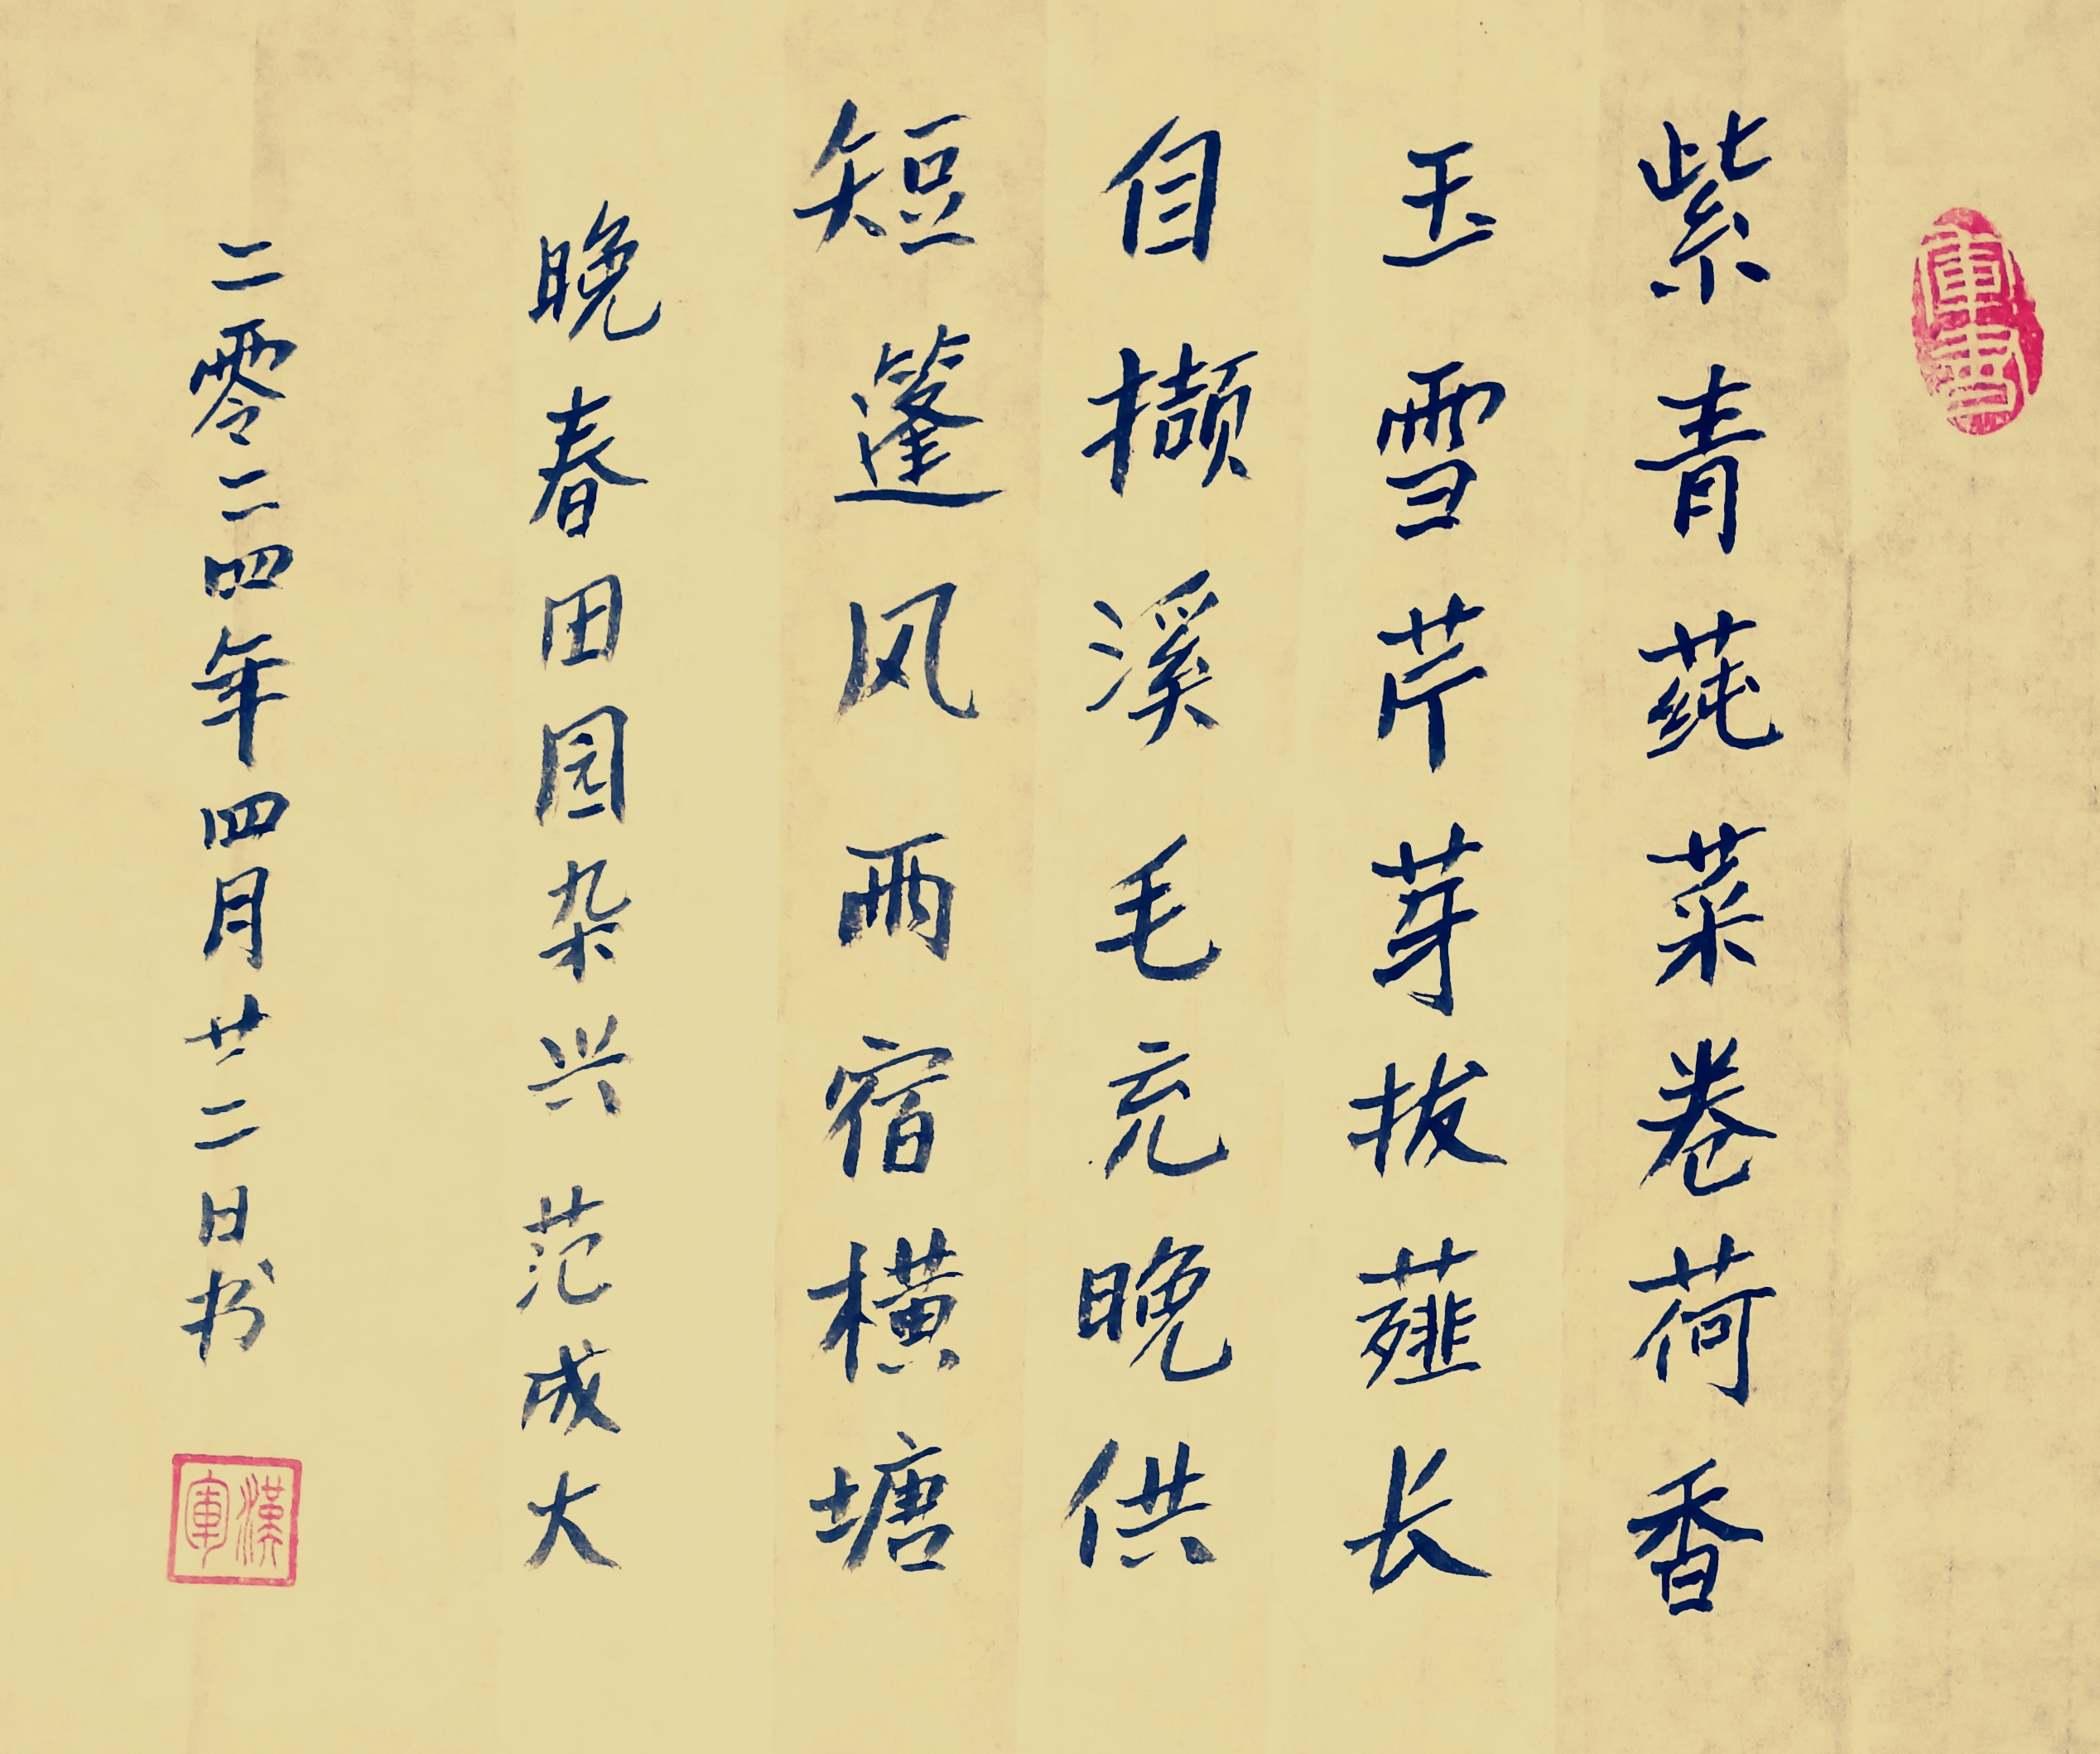 紫青莼菜卷荷香
玉雪芹芽拔薤长
自撷溪毛充晚供
短篷风雨宿横塘
晚春田园杂兴 范成大
二零二四年四月廿二日书
軍書
漢軍